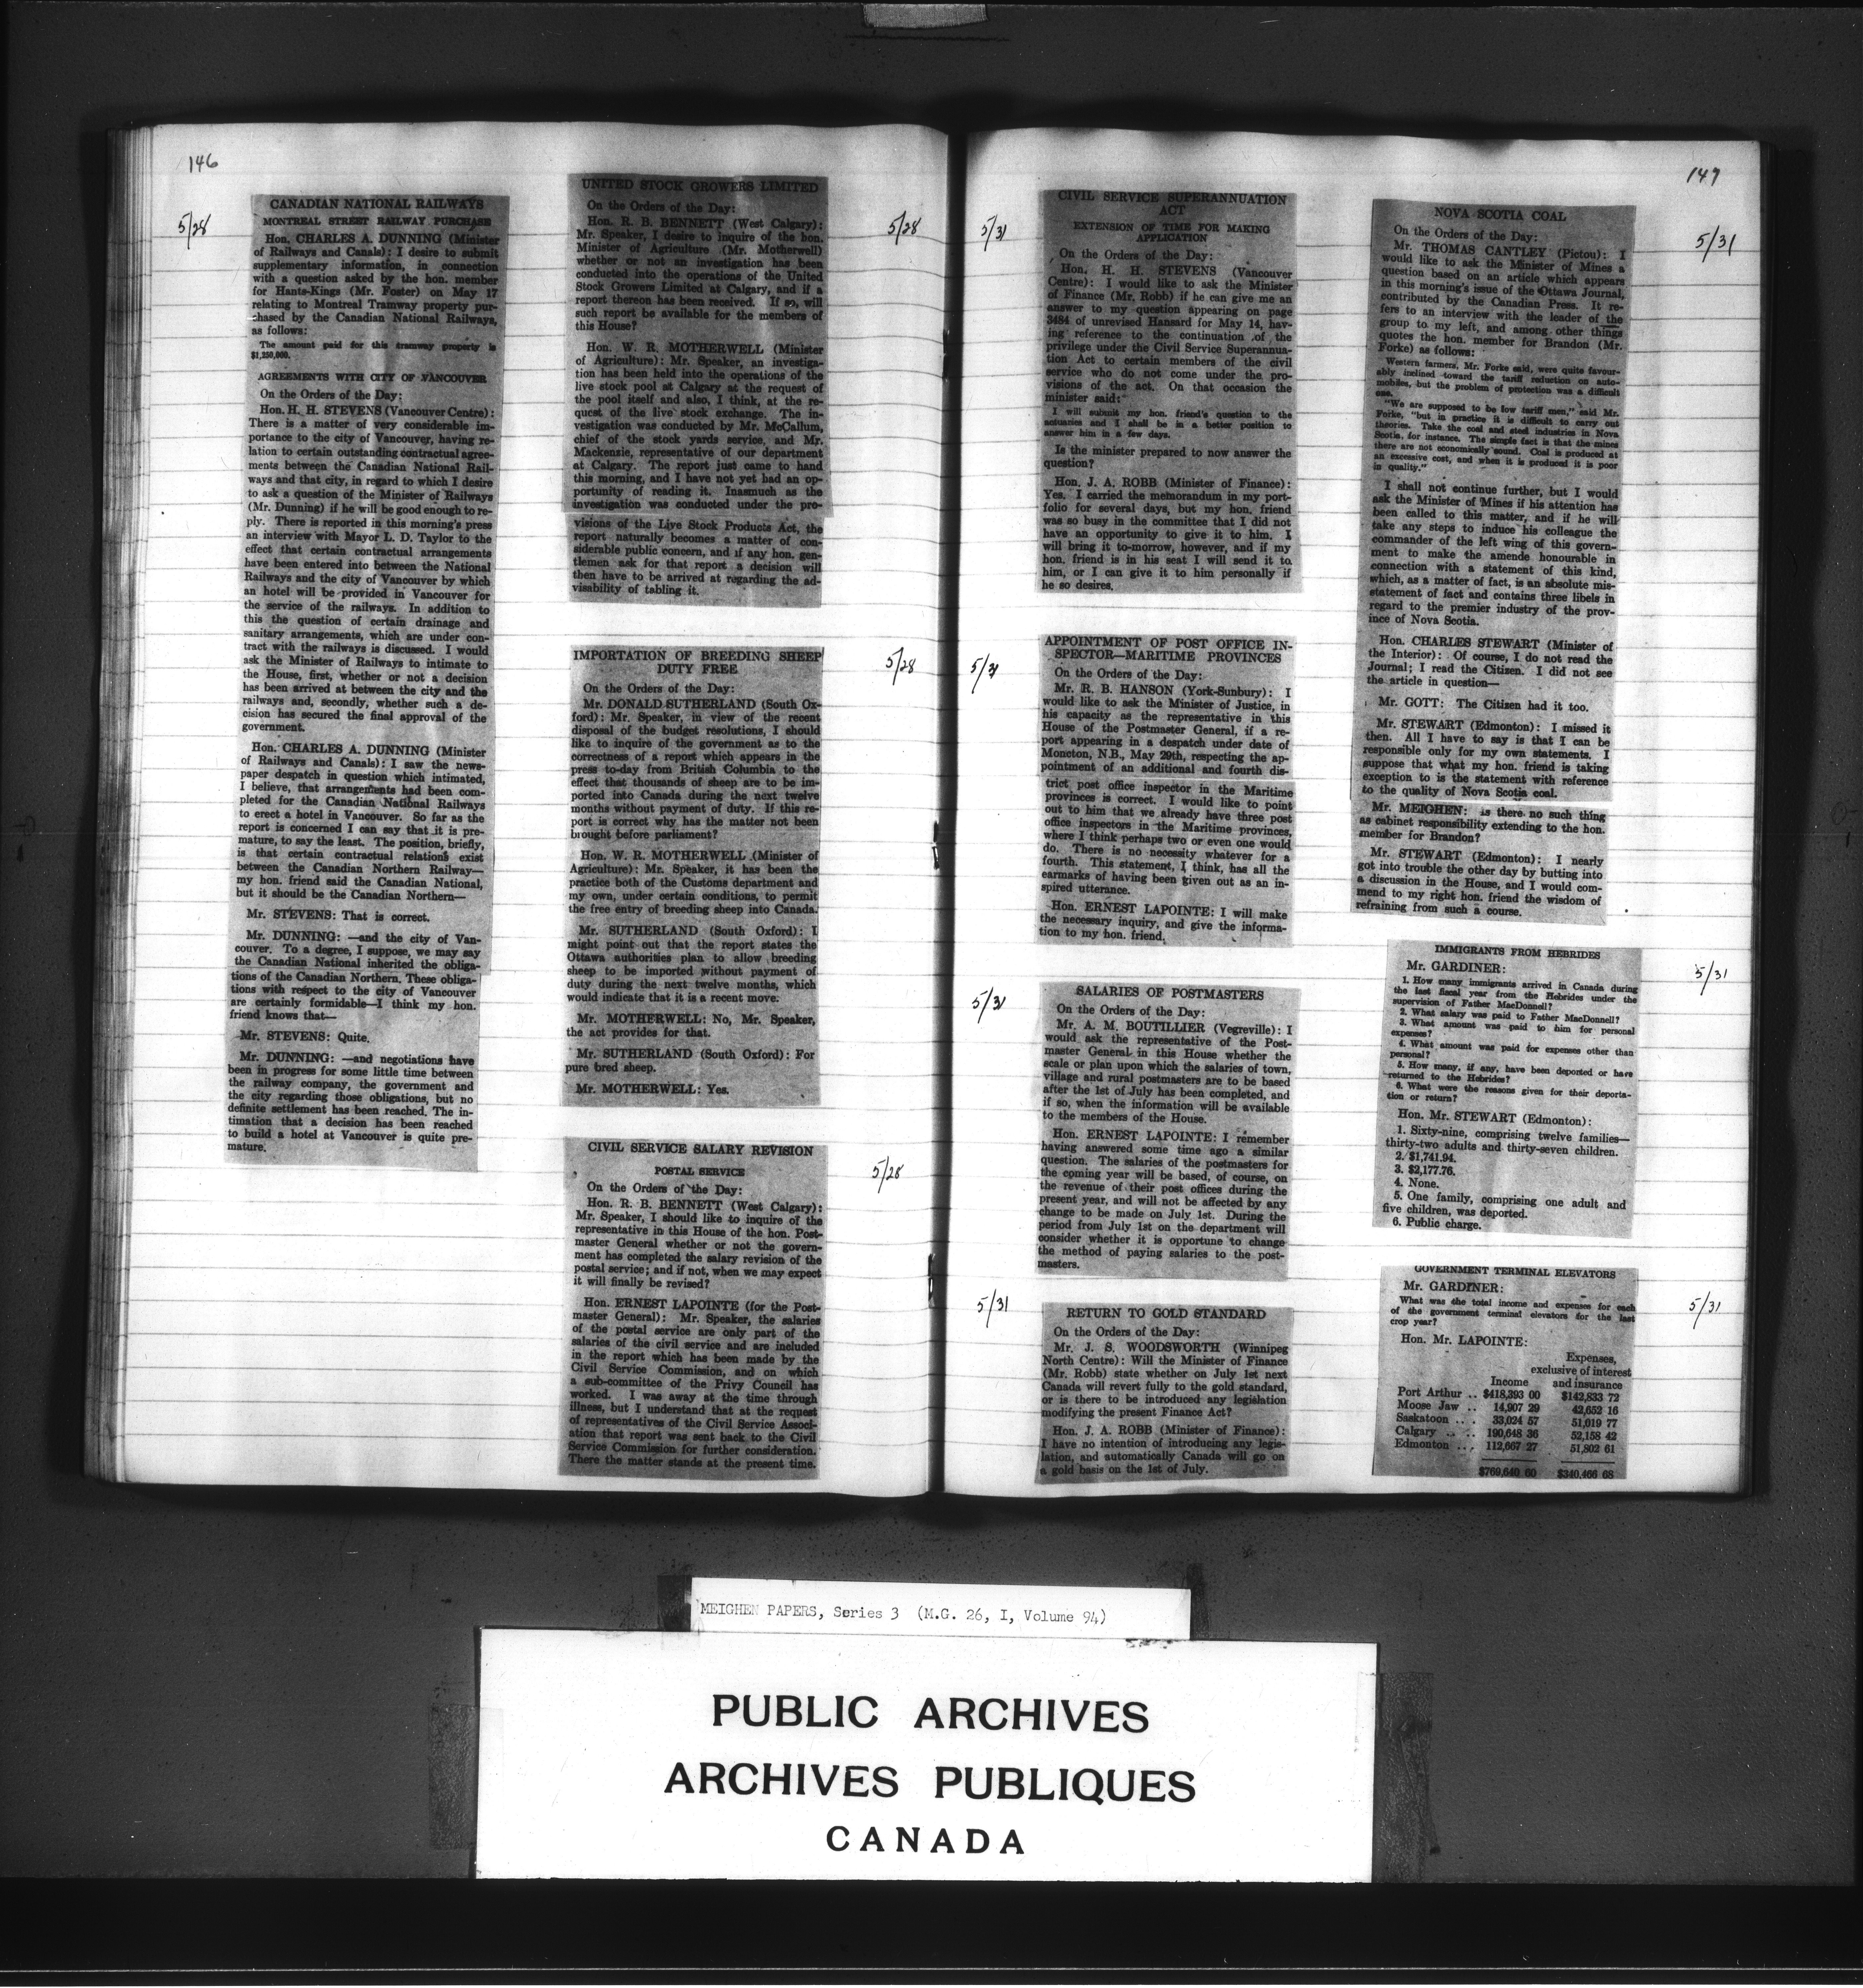 146
5/28
CANADIAN NATIONAL RAILWAYS
MONTREAL STREET RAILWAY PURCHASE
Hon. CHARLES A. DUNNING (Minister
of Railways and Canals): I desire to submit
supplementary information, in connection
with a question asked by the hon. member
for Hants-Kings (Mr. Foster) on May 17
relating to Montreal Tramway property pur-
chased by the Canadian National Railways,
as follows:
The amount paid for this tramway property is
$1,250,000.
AGREEMENTS WITH CITY OF VANCOUVER
On the Orders of the Day:
Hon. H. H. STEVENS (Vancouver Centre):
There is a matter of very considerable im-
portance to the city of Vancouver, having re-
lation to certain outstanding contractual agree-
ments between the Canadian National Rail-
ways and that city, in regard to which I desire
to ask a question of the Minister of Railways
(Mr. Dunning) if he will be good enough to re-
ply. There is reported in this morning's press
an interview with Mayor L. D. Taylor to the
effect that certain contractual arrangements
have been entered into between the National
Railways and the city of Vancouver by which
an hotel will be provided in Vancouver for
the service of the railways. In addition to
this the question of certain drainage and
sanitary arrangements, which are under con-
tract with the railways is discussed. I would
ask the Minister of Railways to intimate to
the House, first, whether or not a decision
has been arrived at between the city and the
railways and, secondly, whether such a de-
cision has secured the final approval of the
government.
Hon. CHARLES A. DUNNING (Minister
of Railways and Canals): I saw the news-
paper despatch in question which intimated,
I believe, that arrangements had been com-
pleted for the Canadian National Railways
to erect a hotel in Vancouver. So far as the
report is concerned I can say that it is pre-
mature, to say the least. The position, briefly,
is that certain contractual relations exist
between the Canadian Northern Railway—
my hon. friend said the Canadian National,
but it should be the Canadian Northern—
Mr. STEVENS: That is correct.
Mr. DUNNING: —and the city of Van-
couver. To a degree, I suppose, we may say
the Canadian National inherited the obliga-
tions of the Canadian Northern. These obliga-
tions with respect to the city of Vancouver
are certainly formidable—I think my hon.
friend knows that—
Mr. STEVENS: Quite.
Mr. DUNNING: —and negotiations have
been in progress for some little time between
the railway company, the government and
the city regarding those obligations, but no
definite settlement has been reached. The in-
timation that a decision has been reached
to build a hotel at Vancouver is quite pre-
mature.
UNITED STOCK GROWERS LIMITED
5/28
On the Orders of the Day:
Hon. R. B. BENNETT (West Calgary):
Mr. Speaker, I desire to inquire of the hon.
Minister of Agriculture (Mr. Motherwell)
whether or not an investigation has been
conducted into the operations of the United
Stock Growers Limited at Calgary, and if a
report thereon has been received. If so, will
such report be available for the members of
this House?
Hon. W. R. MOTHERWELL (Minister
of Agriculture): Mr. Speaker, an investiga-
tion has been held into the operations of the
live stock pool at Calgary at the request of
the pool itself and also, I think, at the re-
quest of the live stock exchange. The in-
vestigation was conducted by Mr. McCallum,
chief of the stock yards service, and Mr.
Mackenzie, representative of our department
at Calgary. The report just came to hand
this morning, and I have not yet had an op-
portunity of reading it. Inasmuch as the
investigation was conducted under the pro-
visions of the Live Stock Products Act, the
report naturally becomes a matter of con-
siderable public concern, and if any hon. gen-
tlemen ask for that report a decision will
then have to be arrived at regarding the ad-
visability of tabling it.
5/28
IMPORTATION OF BREEDING SHEEP
DUTY FREE
On the Orders of the Day:
Mr. DONALD SUTHERLAND (South Ox-
ford): Mr. Speaker, in view of the recent
disposal of the budget resolutions, I should
like to inquire of the government as to the
correctness of a report which appears in the
press to-day from British Columbia to the
effect that thousands of sheep are to be im-
ported into Canada during the next twelve
months without payment of duty. If this re-
port is correct why has the matter not been
brought before parliament?
Hon. W. R. MOTHERWELL (Minister of
Agriculture): Mr. Speaker, it has been the
practice both of the Customs department and
my own, under certain conditions, to permit
the free entry of breeding sheep into Canada.
Mr. SUTHERLAND (South Oxford): I
might point out that the report states the
Ottawa authorities plan to allow breeding
sheep to be imported without payment of
duty during the next twelve months, which
would indicate that it is a recent move.
Mr. MOTHERWELL: No, Mr. Speaker,
the act provides for that.
Mr. SUTHERLAND (South Oxford): For
pure bred sheep.
Mr. MOTHERWELL: Yes.
5/28
CIVIL SERVICE SALARY REVISION
POSTAL SERVICE
On the Orders of the Day:
Hon. R. B. BENNETT (West Calgary):
Mr. Speaker, I should like to inquire of the
representative in this House of the hon. Post-
master General whether or not the govern-
ment has completed the salary revision of the
postal service; and if not, when we may expect
it will finally be revised?
Hon. ERNEST LAPOINTE (for the Post-
master General): Mr. Speaker, the salaries
of the postal service are only part of the
salaries of the civil service and are included
in the report which has been made by the
Civil Service Commission, and on which
a sub-committee of the Privy Council has
worked. I was away at the time through
illness, but I understand that at the request
of representatives of the Civil Service Associ-
ation that report was sent back to the Civil
Service Commission for further consideration.
There the matter stands at the present time.
147
5/31
CIVIL SERVICE SUPERANNUATION
ACT
EXTENSION OF TIME FOR MAKING
APPLICATION
On the Orders of the Day:
Hon. H. H. STEVENS (Vancouver
Centre): I would like to ask the Minister
of Finance (Mr. Robb) if he can give me an
answer to my question appearing on page
3484 of unrevised Hansard for May 14, hav-
ing reference to the continuation of the
privilege under the Civil Service Superannua-
tion Act to certain members of the civil
service who do not come under the pro-
visions of the act. On that occasion the
minister said:
I will submit my hon. friend's question to the
actuaries and I shall be in a better position to
answer him in a few days.
Is the minister prepared to now answer the
question?
Hon. J. A. ROBB (Minister of Finance):
Yes. I carried the memorandum in my port-
folio for several days, but my hon. friend
was so busy in the committee that I did not
have an opportunity to give it to him. I
will bring it to-morrow, however, and if my
hon. friend is in his seat I will send it to
him, or I can give it to him personally if
he so desires.
5/31
APPOINTMENT OF POST OFFICE IN-
SPECTOR—MARITIME PROVINCES
On the Orders of the Day:
Mr. R. B. HANSON (York-Sunbury): I
would like to ask the Minister of Justice, in
his capacity as the representative in this
House of the Postmaster General, if a re-
port appearing in a despatch under date of
Moncton, N.B., May 29th, respecting the ap-
pointment of an additional and fourth dis-
trict post office inspector in the Maritime
provinces is correct. I would like to point
out to him that we already have three post
office inspectors in the Maritime provinces,
where I think perhaps two or even one would
do. There is no necessity whatever for a
fourth. This statement, I think, has all the
earmarks of having been given out as an in-
spired utterance.
Hon. ERNEST LAPOINTE: I will make
the necessary inquiry, and give the informa-
tion to my hon. friend.
5/31
SALARIES OF POSTMASTERS
On the Orders of the Day:
Mr. A. M. BOUTILLIER (Vegreville): I
would ask the representative of the Post-
master General in this House whether the
scale or plan upon which the salaries of town,
village and rural postmasters are to be based
after the 1st of July has been completed, and
if so, when the information will be available
to the members of the House.
Hon. ERNEST LAPOINTE: I remember
having answered some time ago a similar
question. The salaries of the postmasters for
the coming year will be based, of course, on
the revenue of their post offices during the
present year, and will not be affected by any
change to be made on July 1st. During the
period from July 1st on the department will
consider whether it is opportune to change
the method of paying salaries to the post-
masters.
5/31
RETURN TO GOLD STANDARD
On the Orders of the Day:
Mr. J. S. WOODSWORTH (Winnipeg
North Centre): Will the Minister of Finance
(Mr. Robb) state whether on July 1st next
Canada will revert fully to the gold standard,
or is there to be introduced any legislation
modifying the present Finance Act?
Hon. J. A. ROBB (Minister of Finance):
I have no intention of introducing any legis-
lation, and automatically Canada will go on
a gold basis on the 1st of July.
5/31
NOVA SCOTIA COAL
On the Orders of the Day:
Mr. THOMAS CANTLEY (Pictou): I
would like to ask the Minister of Mines a
question based on an article which appears
in this morning's issue of the Ottawa Journal,
contributed by the Canadian Press. It re-
fers to an interview with the leader of the
group to my left, and among other things
quotes the hon. member for Brandon (Mr.
Forke) as follows:
Western farmers, Mr. Forke said, were quite favour-
ably inclined toward the tariff reduction on auto-
mobiles, but the problem of protection was a difficult
one.
"We are supposed to be low tariff men," said Mr.
Forke, "but in practice it is difficult to carry out
theories. Take the coal and steel industries in Nova
Scotia, for instance. The simple fact is that the mines
there are not economically sound. Coal is produced at
an excessive cost, and when it is produced it is poor
in quality."
I shall not continue further, but I would
ask the Minister of Mines if his attention has
been called to this matter, and if he will
take any steps to induce his colleague the
commander of the left wing of this govern-
ment to make the amende honourable in
connection with a statement of this kind,
which, as a matter of fact, is an absolute mis-
statement of fact and contains three libels in
regard to the premier industry of the prov-
ince of Nova Scotia.
Hon. CHARLES STEWART (Minister of
the Interior): Of course, I do not read the
Journal; I read the Citizen. I did not see
the article in question—
Mr. GOTT: The Citizen had it too.
Mr. STEWART (Edmonton): I missed it
then. All I have to say is that I can be
responsible only for my own statements. I
suppose that what my hon. friend is taking
exception to is the statement with reference
to the quality of Nova Scotia coal.
Mr. MEIGHEN: is there no such thing
as cabinet responsibility extending to the hon.
member for Brandon?
Mr. STEWART (Edmonton): I nearly
got into trouble the other day by butting into
a discussion in the House, and I would com-
mend to my right hon. friend the wisdom of
refraining from such a course.
5/31
IMMIGRANTS FROM HEBRIDES
Mr. GARDINER:
1. How many immigrants arrived in Canada during
the last fiscal year from the Hebrides under the
supervision of Father MacDonnell?
2. What salary was paid to Father MacDonnell?
3. What amount was paid to him for personal
expenses?
4. What amount was paid for expenses other than
personal?
5. How many, if any, have been deported or have
returned to the Hebrides?
6. What were the reasons given for their deporta-
tion or return?
Hon. Mr. STEWART (Edmonton):
1. Sixty-nine, comprising twelve families—
thirty-two adults and thirty-seven children.
2. $1,741.94.
3. $2,177.76.
4. None.
5. One family, comprising one adult and
five children, was deported.
6. Public charge.
5/31
GOVERNMENT TERMINAL ELEVATORS
Mr. GARDINER:
What was the total income and expenses for each
of the government terminal elevators for the last
crop year?
Hon. Mr. LAPOINTE:
Expenses,
exclusive of interest
Income and insurance
Port Arthur .. $418,393 00 $142,833 72
Moose Jaw .. 14,907 29 42,652 16
Saskatoon .. . 33,024 57 51,019 77
Calgary .. .. 190,648 36 52,158 42
Edmonton ... 112,667 27 51,802 61
$769,640 60 $340,466 68
MEIGHEN PAPERS, Series 3 (M.G. 26, I, Volume 94)
PUBLIC ARCHIVES
ARCHIVES PUBLIQUES
CANADA